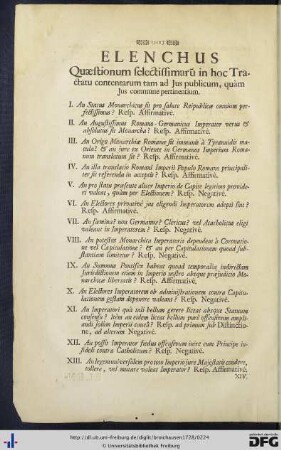 ELENCHUS
Quæstionum selectissimarũ in hoc Tra-
ctatu contentarum tam ad Jus publicum, quàm
Jus commune pertinentium.
I. An Status Monarchicus sit pro salute Reipublicæ omnium per-
fectissimus? Resp. Affirmativè.
II. An Augustissimus Romano-Germanicus Imperator verus &
absolutus sit Monarcha? Resp. Affirmativè.
III. An Origo Monarchiæ Romanæ sit immunis à Tyrannidis ma-
cula? & an jure ex Oriente in Germanos Imperium Roma-
num translatum sit? Resp. Affirmativè.
IV. An illa translatio Romani Imperii Populo Romano principali-
ter sit referenda in acceptis? Resp. Affirmativè.
V. An pro statu præsente aliter Imperio de Capite legitimo provide-
ri valeat, quàm per Electionem? Resp. Negativè.
VI. An Electores privativè jus eligendi Imperatorem adepti sint?
Resp. Affirmativè.
VII. An fœmina? non Germanus? Clericus? vel Acatholicus eligi
valeant in Imperatorem? Resp. Negativè.
VIII. An potestas Monarchica Imperatoris dependeat à Coronatio-
ne vel Capitulatione? & an per Capitulationem quoad sub-
stantiam limitetur? Resp. Negativè.
IX. An Summus Pontifex habeat quoad temporalia indirectam
Jurisdictionem etiam in Imperio nostro absque præjudicio Mo-
narchiæ libertatis? Resp. Affirmativè.
X. An Electores Imperatorem ob administrationem contra Capitu-
lationem gestam deponere valeant? Resp. Negativè.
XI. An Imperatori quà tali bellum gerere liceat absque Statuum
consensu? Item an eidem liceat bellum purè offensivum ampli-
andi solùm Imperii causâ? Resp. ad primum sub Distinctio-
ne, ad alterum Negativè.
XII. An possit Imperator fœdus offensivum inire cum Principe in-
fideli contra Catholicum? Resp. Negativè.
XIII. An legem universalem pro toto Imperio jure Majestatis condere,
tollere, vel mutare valeat Imperator? Resp. Affirmativè.
XIV.
http://dl.ub.uni-freiburg.de/diglit/broichausen1728/0224
© Universitätsbibliothek Freiburg
gefördert durch die
DFG